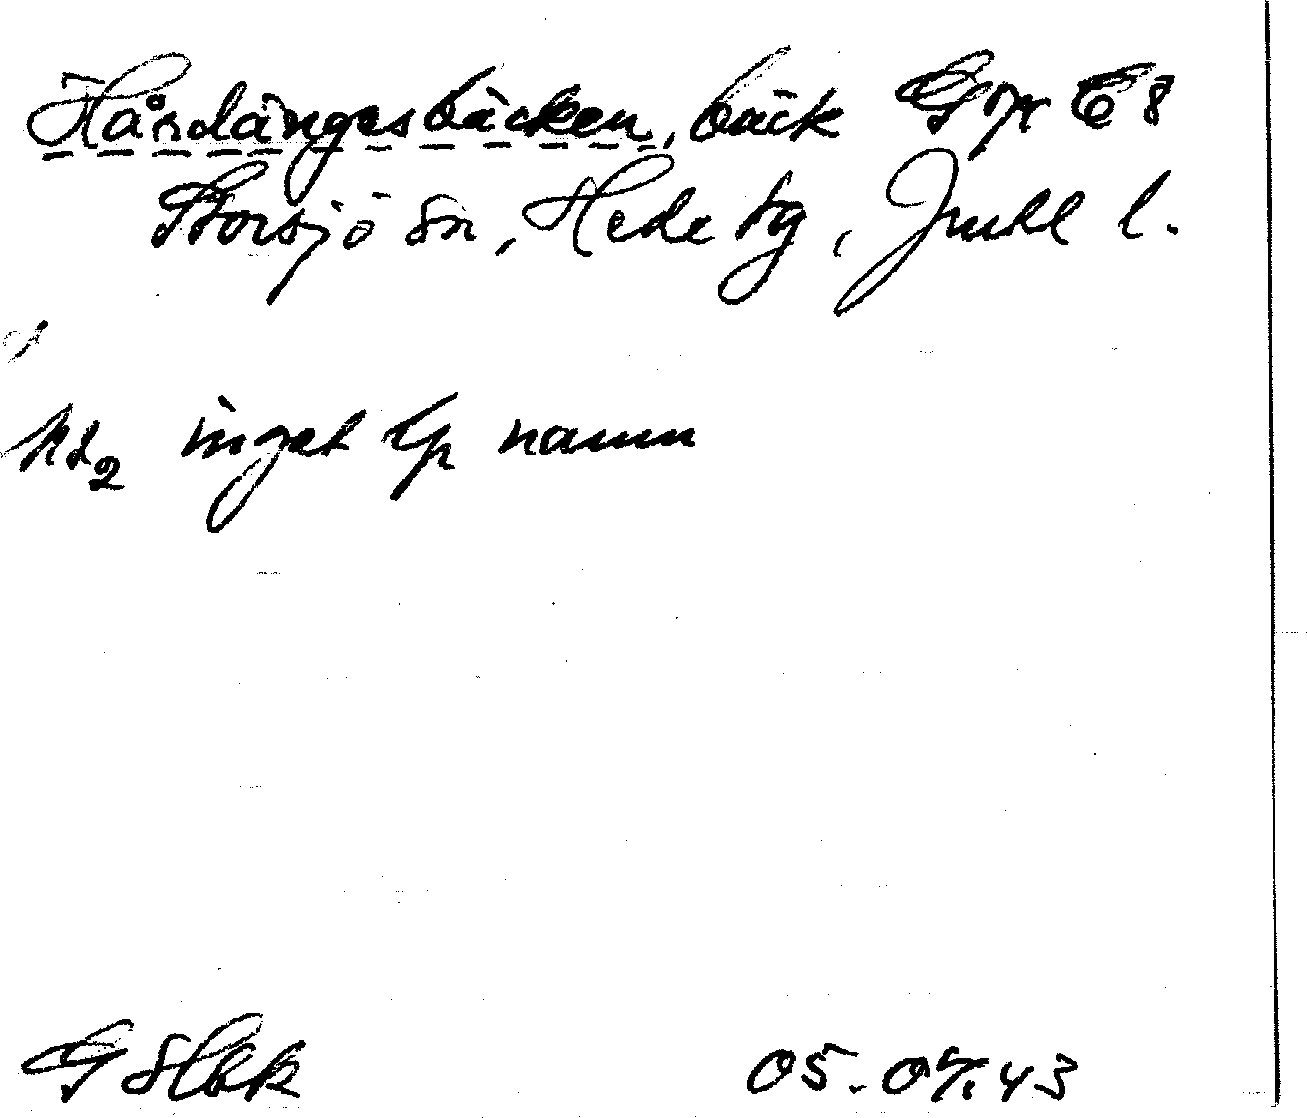 Hårdängesbäcken, bäck Gpr C 8
Storsjö sn, Hede tg, Jmtl l.
kt2 inget lp namn
05.07.43